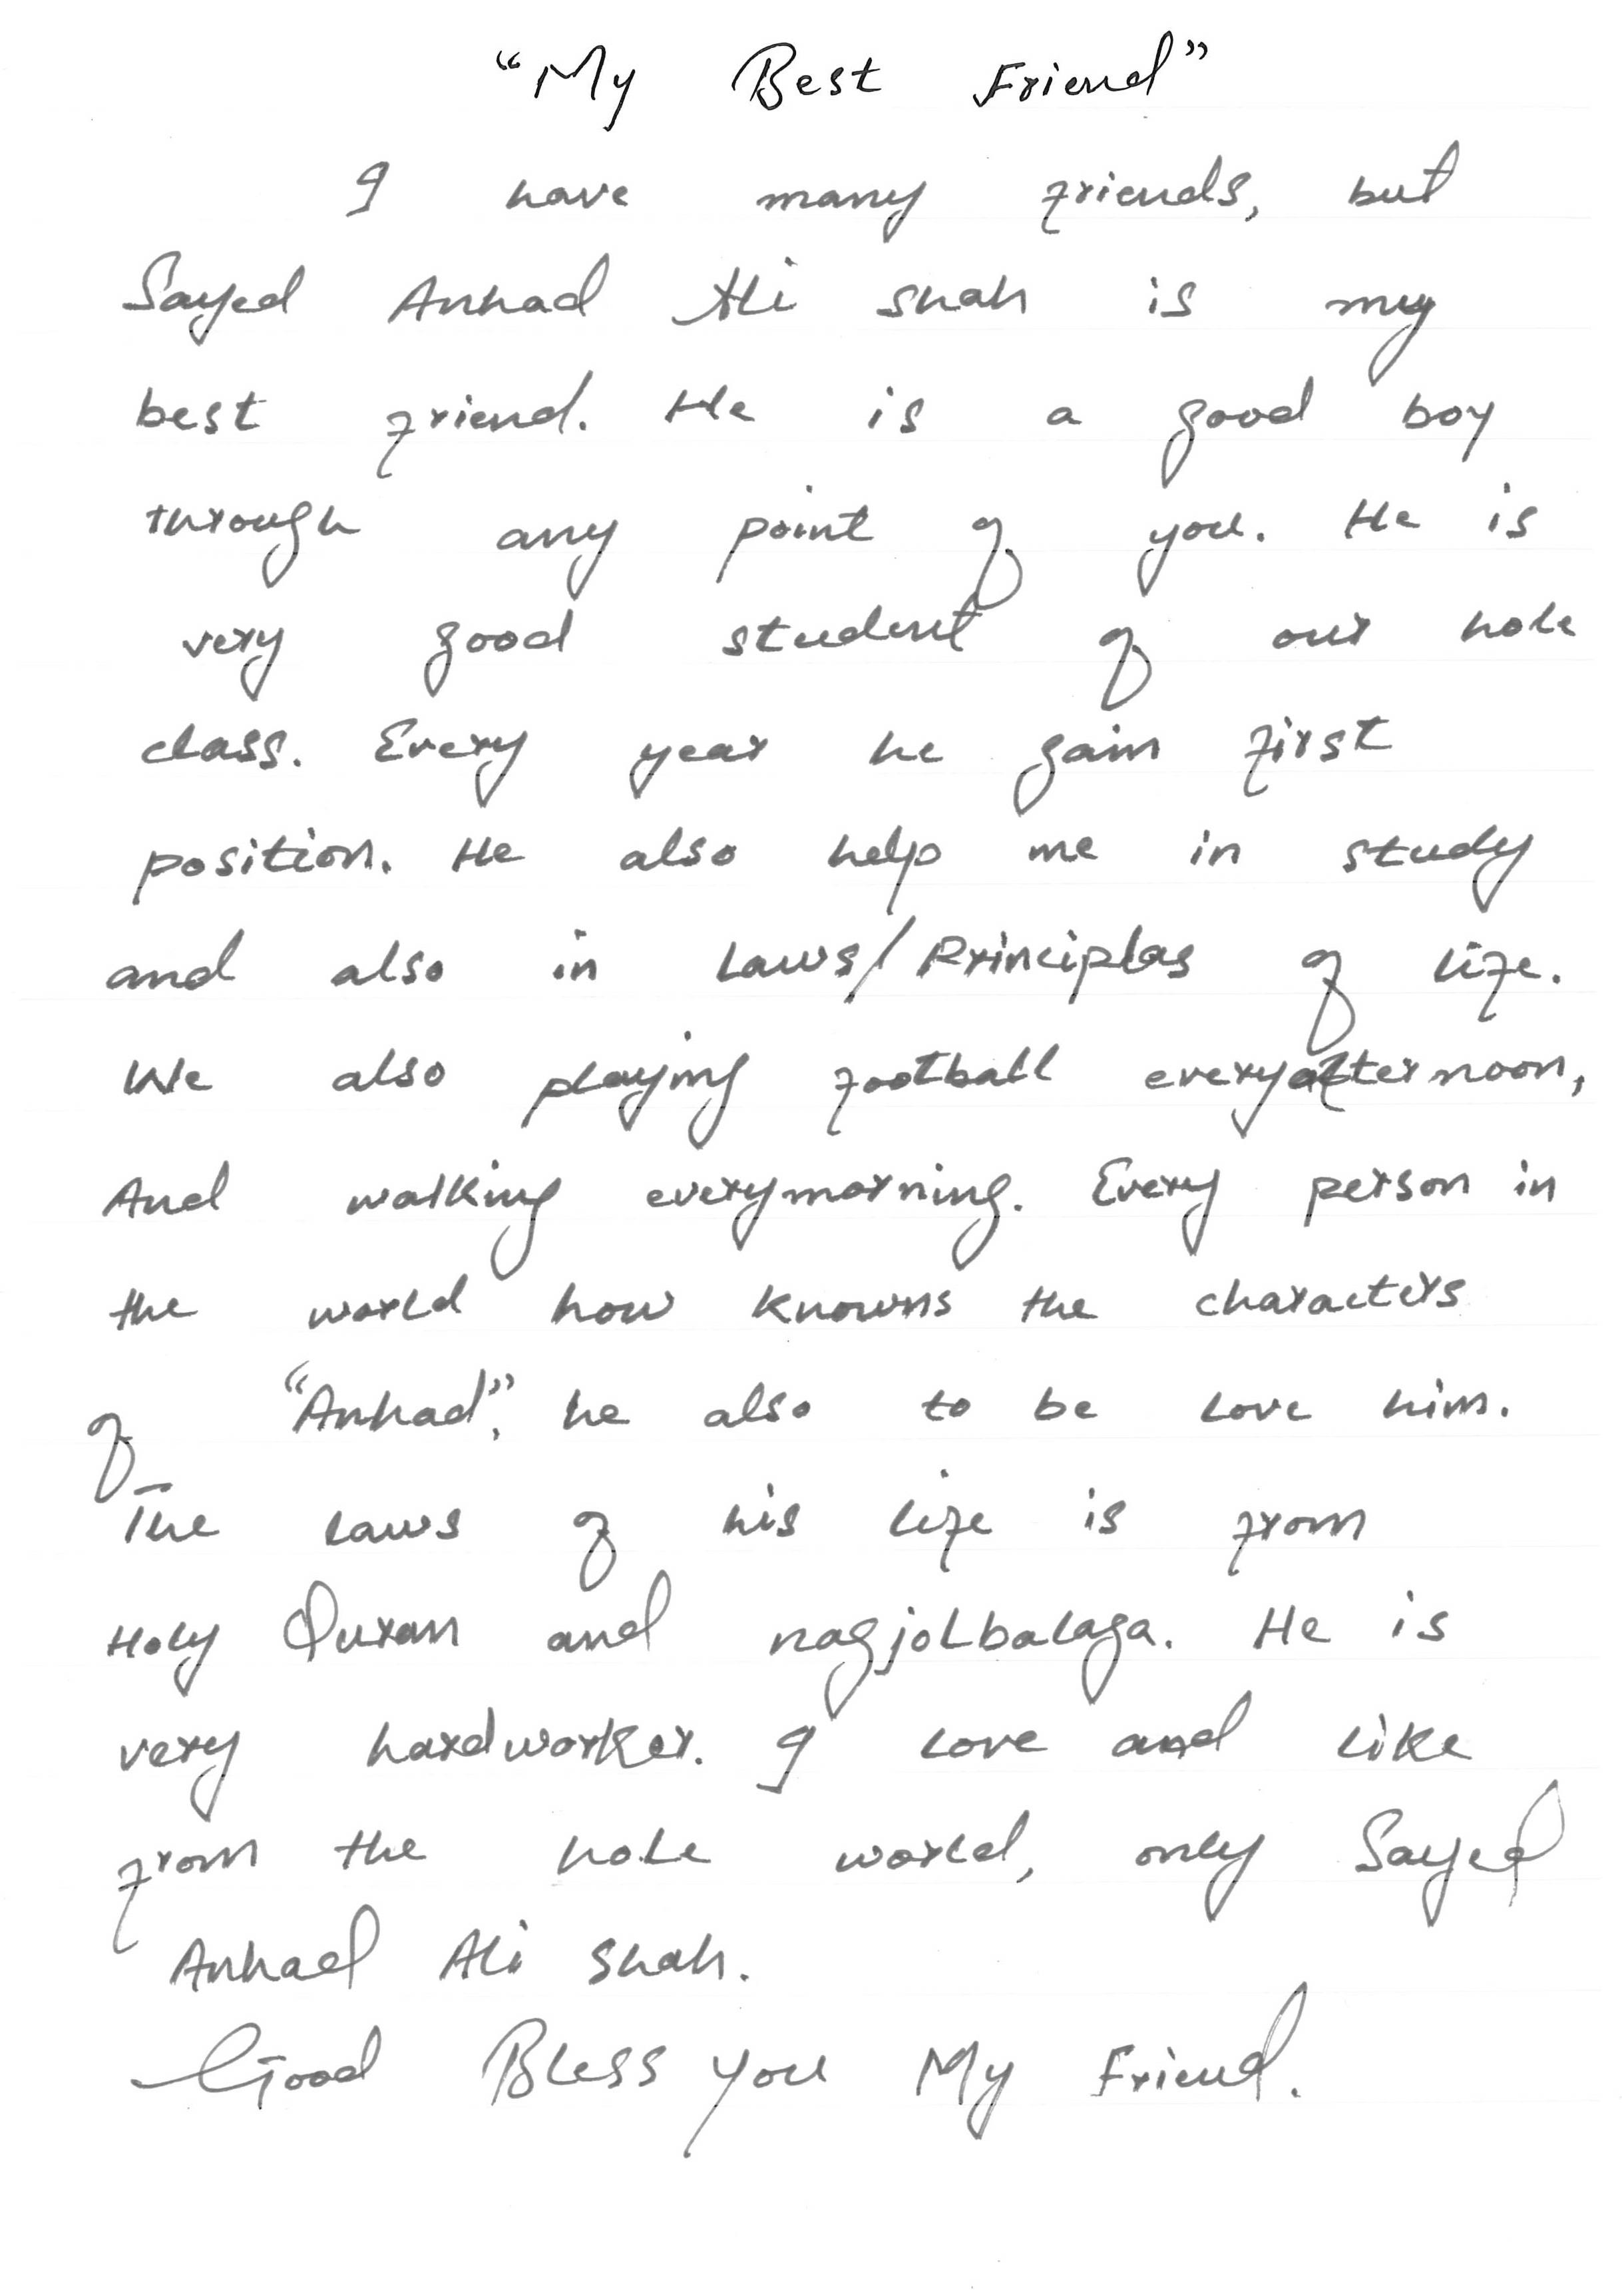 "My Best Friend"
I have many friends, but
Sayed Anhad Ali shah is my
best friend. He is a good boy
through any point of you. He is
very good student of our hole
class. Every year he gain first
position. He also help me in study
and also in Laws/Principlas of life.
We also playing football everyafternoon,
And walking everymorning. Every person in
the world how knowns the characters
of "Anhad", he also to be love him.
The laws of his life is from
Holy Quran and nagjolbalaga. He is
very hardworker. I love and like
from the hole world, only Sayed
Anhad Ali Shah.
Good Bless you My Friend.